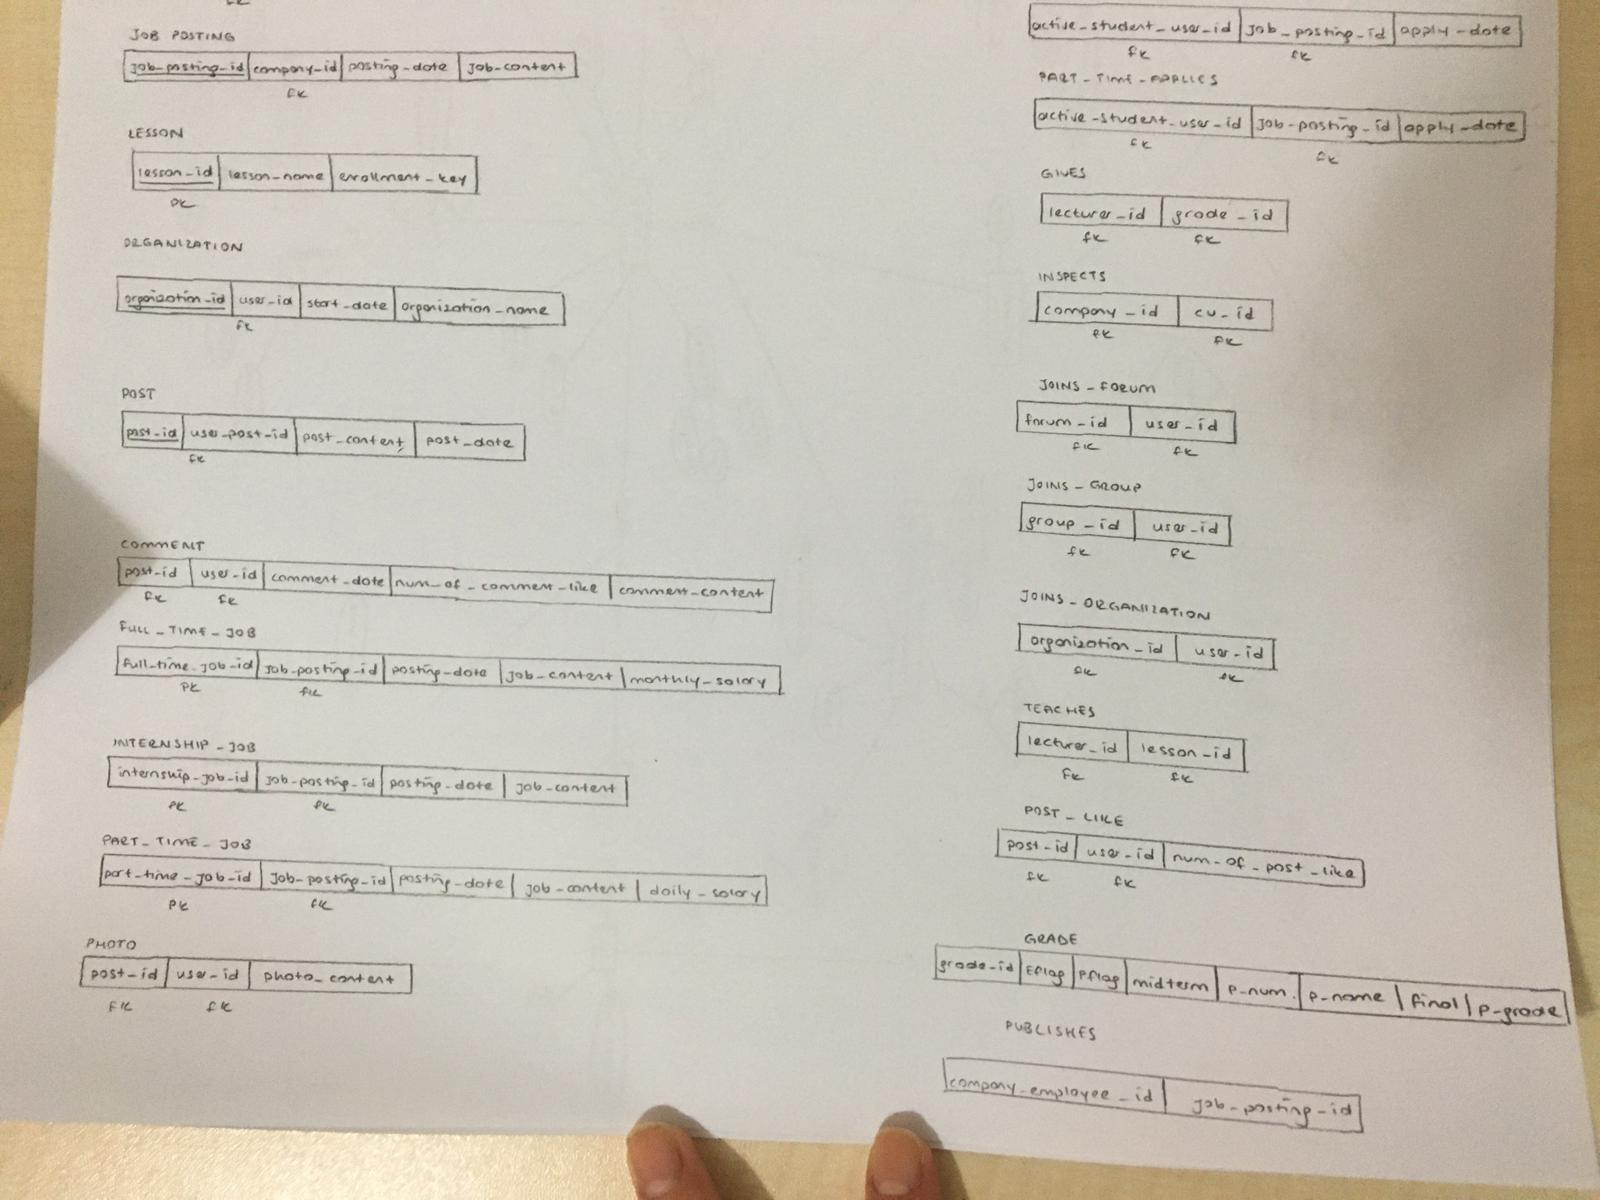 fk
JOB POSTING
job_posting_id company_id posting_date job_content
fk
LESSON
lesson_id lesson_name enrollment_key
pk
ORGANIZATION
organization_id user_id start_date organization_name
fk
POST
post_id user_post_id post_content post_date
fk
COMMENT
post_id user_id comment_date num_of_comment_like comment_content
fk fk
FULL_TIME_JOB
full_time_job_id job_posting_id posting_date job_content monthly_salary
pk fk
INTERNSHIP_JOB
internship_job_id job_posting_id posting_date job_content
pk fk
PART_TIME_JOB
part_time_job_id job_posting_id posting_date job_content daily_salary
pk fk
PHOTO
post_id user_id photo_content
fk fk
active_student_user_id job_posting_id apply_date
fk fk
PART_TIME_APPLIES
active_student_user_id job_posting_id apply_date
fk fk
GIVES
lecturer_id grade_id
fk fk
INSPECTS
company_id cv_id
fk fk
JOINS_FORUM
forum_id user_id
fk fk
JOINS_GROUP
group_id user_id
fk fk
JOINS_ORGANIZATION
organization_id user_id
fk fk
TEACHES
lecturer_id lesson_id
fk fk
POST_LIKE
post_id user_id num_of_post_like
fk fk
GRADE
grade_id Eflag Pflag midterm p_num p_name final p_grade
PUBLISHES
company_employee_id job_posting_id